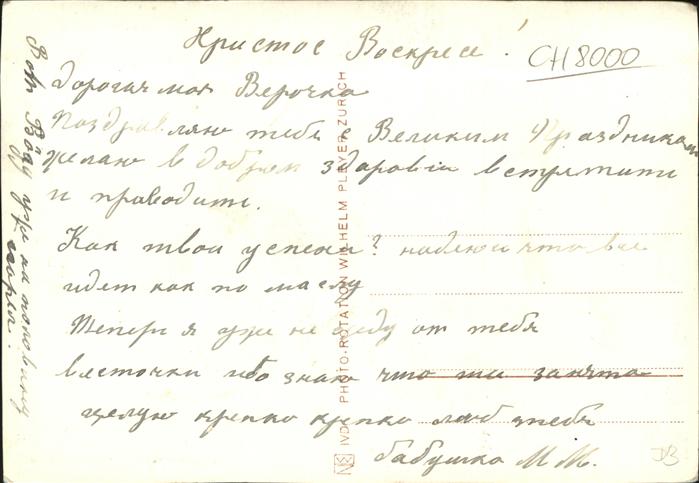 Христос Воскресе!
CH 8000
Дорогая моя Верочка
Поздравляю тебя с Великим Праздником
желаю в добром здоровіи встретити
и проводити.
Как твои успехи? надеюсь что все
идет как по маслу
Теперь я уже не жду от тебя
весточки ибо знаю что ты занята
целую крепко крепко люб тебя
бабушка М М.
уже на половину
IVD PHOTO-ROTATION WILHELM PLEYER ZÜRICH